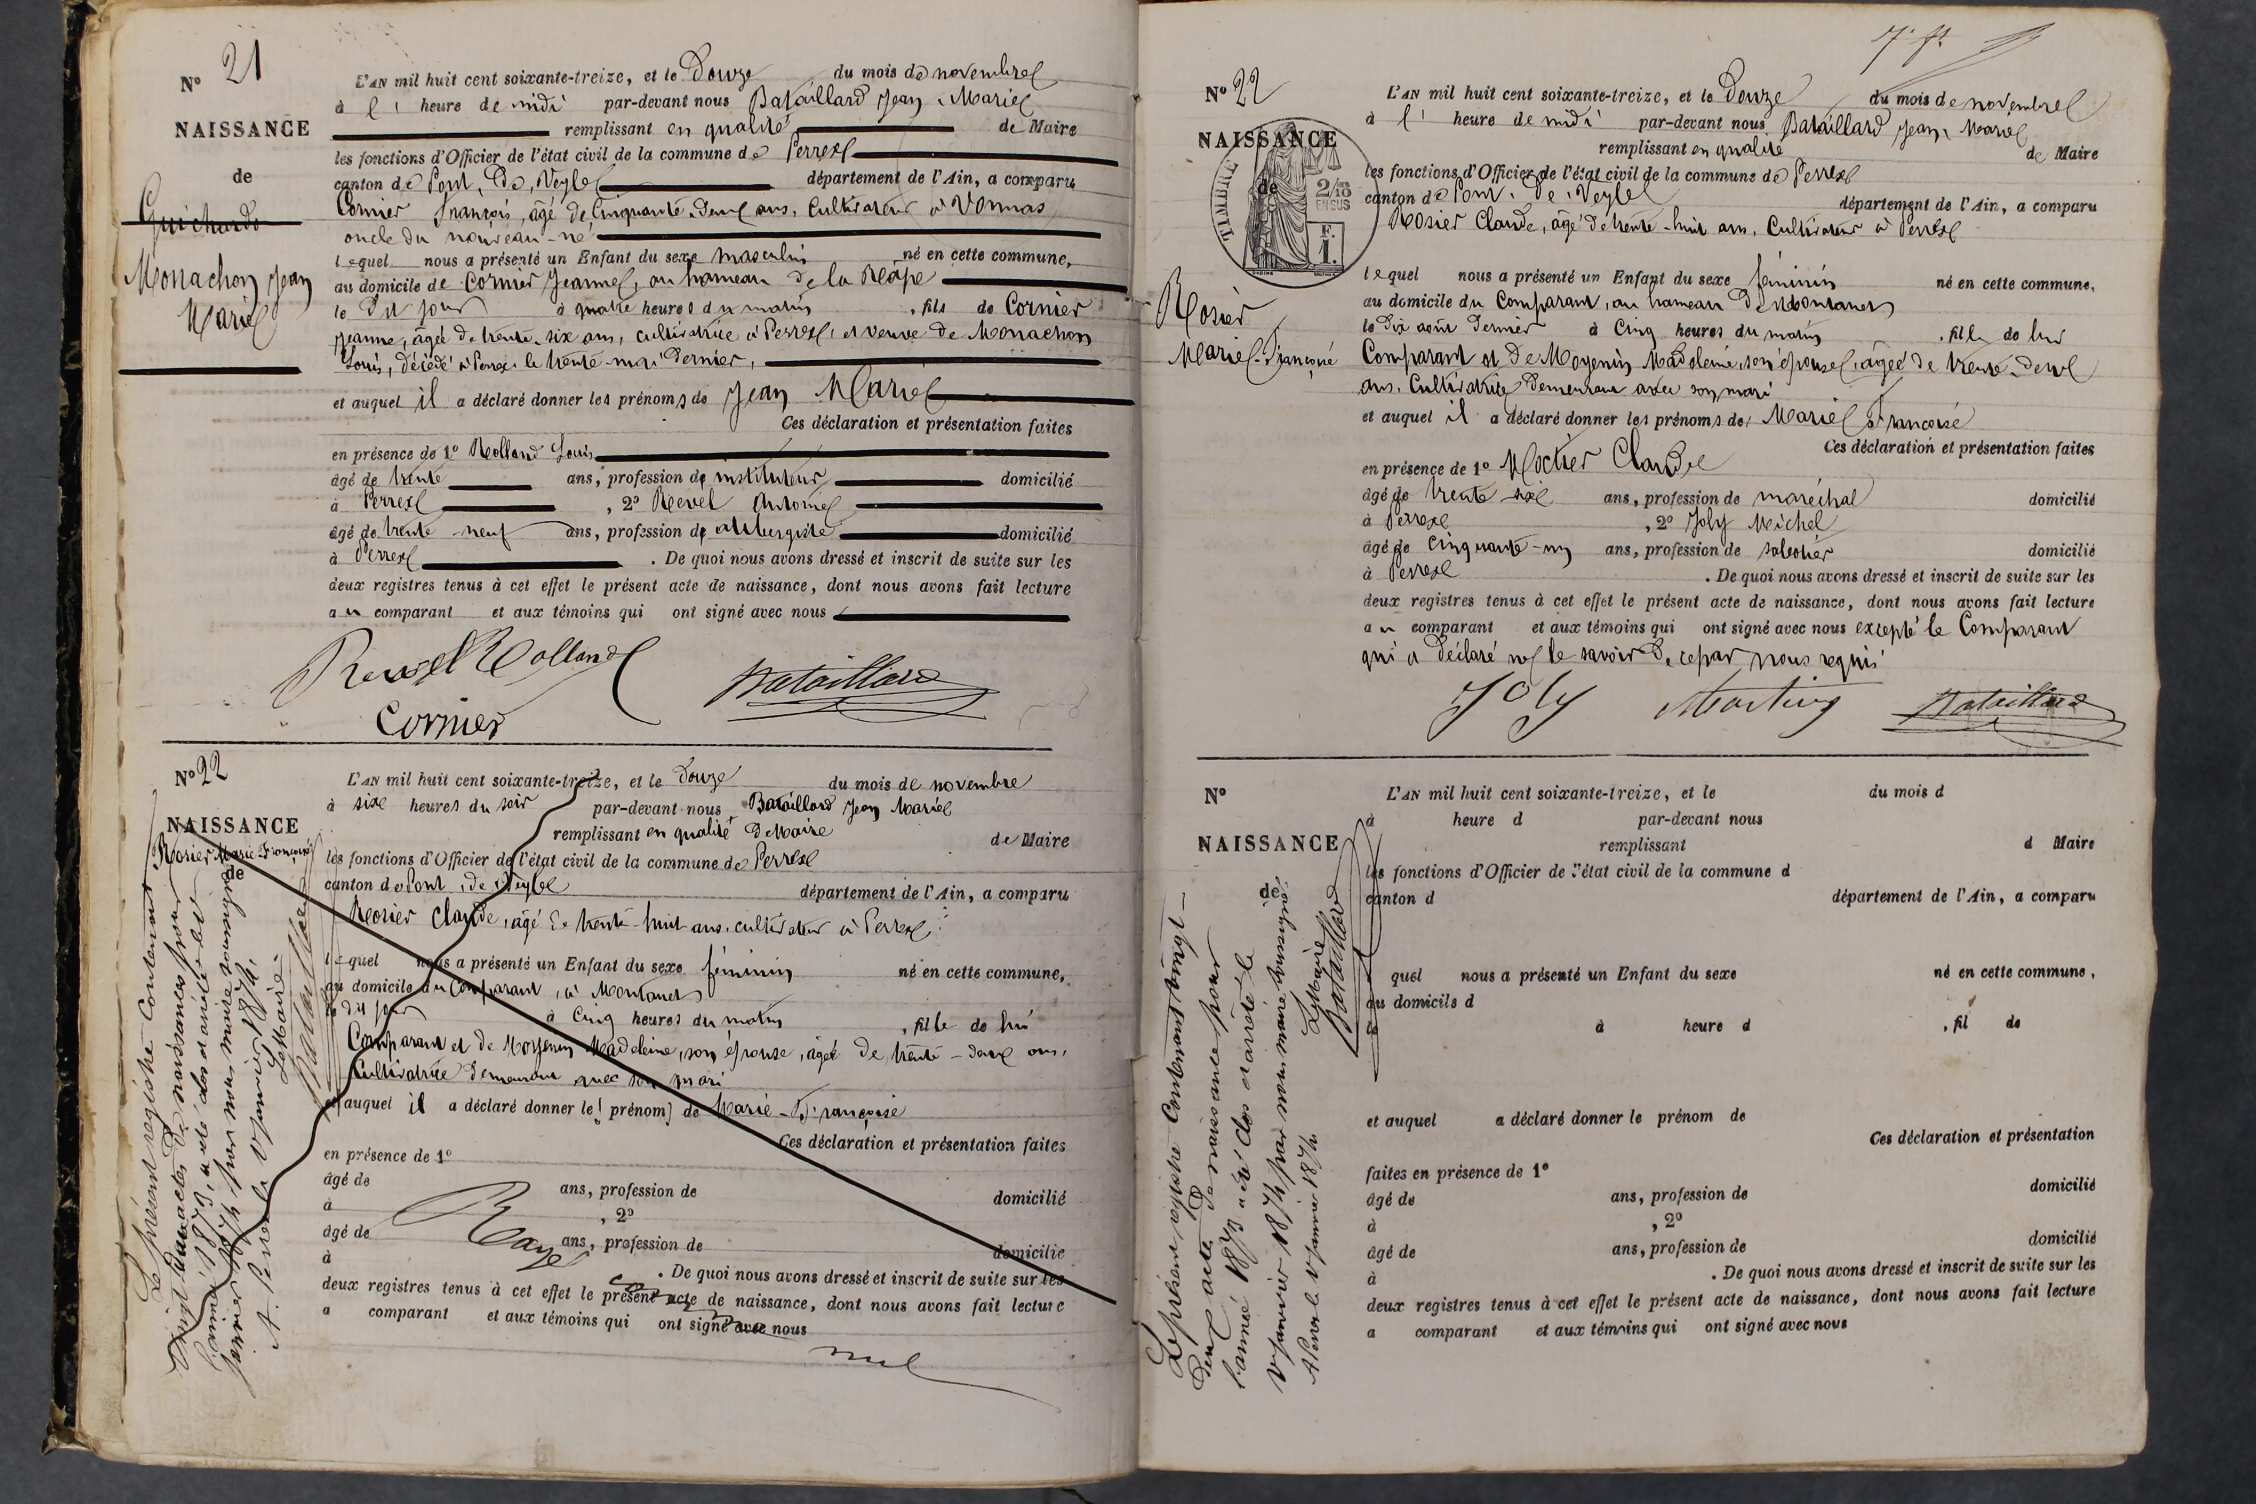 N° 21
NAISSANCE
de
Guichardo
Monachon Jean
Marie
L'AN mil huit cent soixante-treize, et le Douze du mois de novembre
à l' heure de midi par-devant nous Bataillard Jean Marie
remplissant en qualité de Maire
les fonctions d'Officier de l'état civil de la commune de Perrex
canton de Pont, de, Veyle département de l'Ain, a comparu
Cornier François, âgé de Cinquante-deux ans, Cultivateur à Vonnas
oncle du nouveau-né
lequel nous a présenté un Enfant du sexe masculin né en cette commune,
au domicile de Cornier Jeanne, au hameau de la
le dit jour à quatre heures du matin, fils de Cornier
Jeanne, âgée de trente-six ans, cultivatrice à Perrex, et veuve de Monachon
Louis, décédé à Perrex le trente mai dernier,
et auquel il a déclaré donner les prénoms de Jean Marie
Ces déclaration et présentation faites
en présence de 1° Rolland Louis
âgé de trente ans, profession de instituteur domicilié
à Perrex, 2° Revel Antoine
âgé de trente-neuf ans, profession de aubergiste domicilié
à Perrex. De quoi nous avons dressé et inscrit de suite sur les
deux registres tenus à cet effet le présent acte de naissance, dont nous avons fait lecture
au comparant et aux témoins qui ont signé avec nous
Revel Rolland
Bataillard
Cornier
N° 22
NAISSANCE
Rosier Marie-Françoise
de
L'AN mil huit cent soixante-treize, et le Douze du mois de novembre
à six heures du soir par-devant nous Bataillard Jean Marie
remplissant en qualité de Maire de Maire
les fonctions d'Officier de l'état civil de la commune de Perrex
canton de Pont, de, Veyle département de l'Ain, a comparu
Rosier Claude, âgé de trente-huit ans, cultivateur à Perrex
lequel nous a présenté un Enfant du sexe féminin né en cette commune,
au domicile du Comparant, à Montanet
le dit jour à Cinq heures du matin, fille de lui
Comparant et de Moyenin Madeleine, son épouse, âgée de trente-deux ans,
Cultivatrice demeurant avec son mari
et auquel il a déclaré donner les prénoms de Marie-Françoise
Ces déclaration et présentation faites
en présence de 1°
âgé de ans, profession de domicilié
à , 2°
âgé de ans, profession de domicilié
à . De quoi nous avons dressé et inscrit de suite sur les
deux registres tenus à cet effet le présent acte de naissance, dont nous avons fait lecture
a comparant et aux témoins qui ont signé avec nous
Rayé
nul
Le présent registre Contenant
vingt deux actes de naissances pour
l'année 1873, a été clos et arrêté le
janvier 1874 par nous maire soussigné
A Perrex le janvier 1874,
Le Maire
Bataillard
N° 22
NAISSANCE
de
TIMBRE
2/10
EN SUS
F.
1.
Rosier
Marie-Françoise
L'AN mil huit cent soixante-treize, et le Douze du mois de novembre
à l' heure de midi par-devant nous Bataillard Jean, Marie
remplissant en qualité de Maire
les fonctions d'Officier de l'état civil de la commune de Perrex
canton de Pont, de, Veyle département de l'Ain, a comparu
Rosier Claude, âgé de trente-huit ans, Cultivateur à Perrex
lequel nous a présenté un Enfant du sexe féminin né en cette commune,
au domicile du Comparant, au hameau de Montanet
le dix août dernier à Cinq heures du matin, fille de lui
Comparant et de Moyenin Madeleine, son épouse, âgée de trente-deux
ans, Cultivatrice demeurant avec son mari
et auquel il a déclaré donner les prénoms de Marie Françoise
Ces déclaration et présentation faites
en présence de 1° Claude
âgé de trente-six ans, profession de maréchal domicilié
à Perrex, 2° Joly Michel
âgé de cinquante-un ans, profession de sabotier domicilié
à Perrex. De quoi nous avons dressé et inscrit de suite sur les
deux registres tenus à cet effet le présent acte de naissance, dont nous avons fait lecture
au comparant et aux témoins qui ont signé avec nous excepté le Comparant
qui a déclaré ne le savoir de ce par nous requis
Joly
Bataillard
N°
NAISSANCE
de
L'AN mil huit cent soixante-treize, et le du mois d
à heure d par-devant nous
remplissant d Maire
les fonctions d'Officier de l'état civil de la commune d
canton d département de l'Ain, a comparu
quel nous a présenté un Enfant du sexe né en cette commune,
au domicile d
le à heure d , fil de
et auquel a déclaré donner le prénom de
Ces déclaration et présentation
faites en présence de 1°
âgé de ans, profession de domicilié
à , 2°
âgé de ans, profession de domicilié
à . De quoi nous avons dressé et inscrit de suite sur les
deux registres tenus à cet effet le présent acte de naissance, dont nous avons fait lecture
a comparant et aux témoins qui ont signé avec nous
Le présent registre Contenant vingt-
deux actes de naissance pour
l'année 1873 a été clos et arrêté le
janvier 1874 par nous maire soussigné
A Perrex le janvier 1874
Le Maire
Bataillard